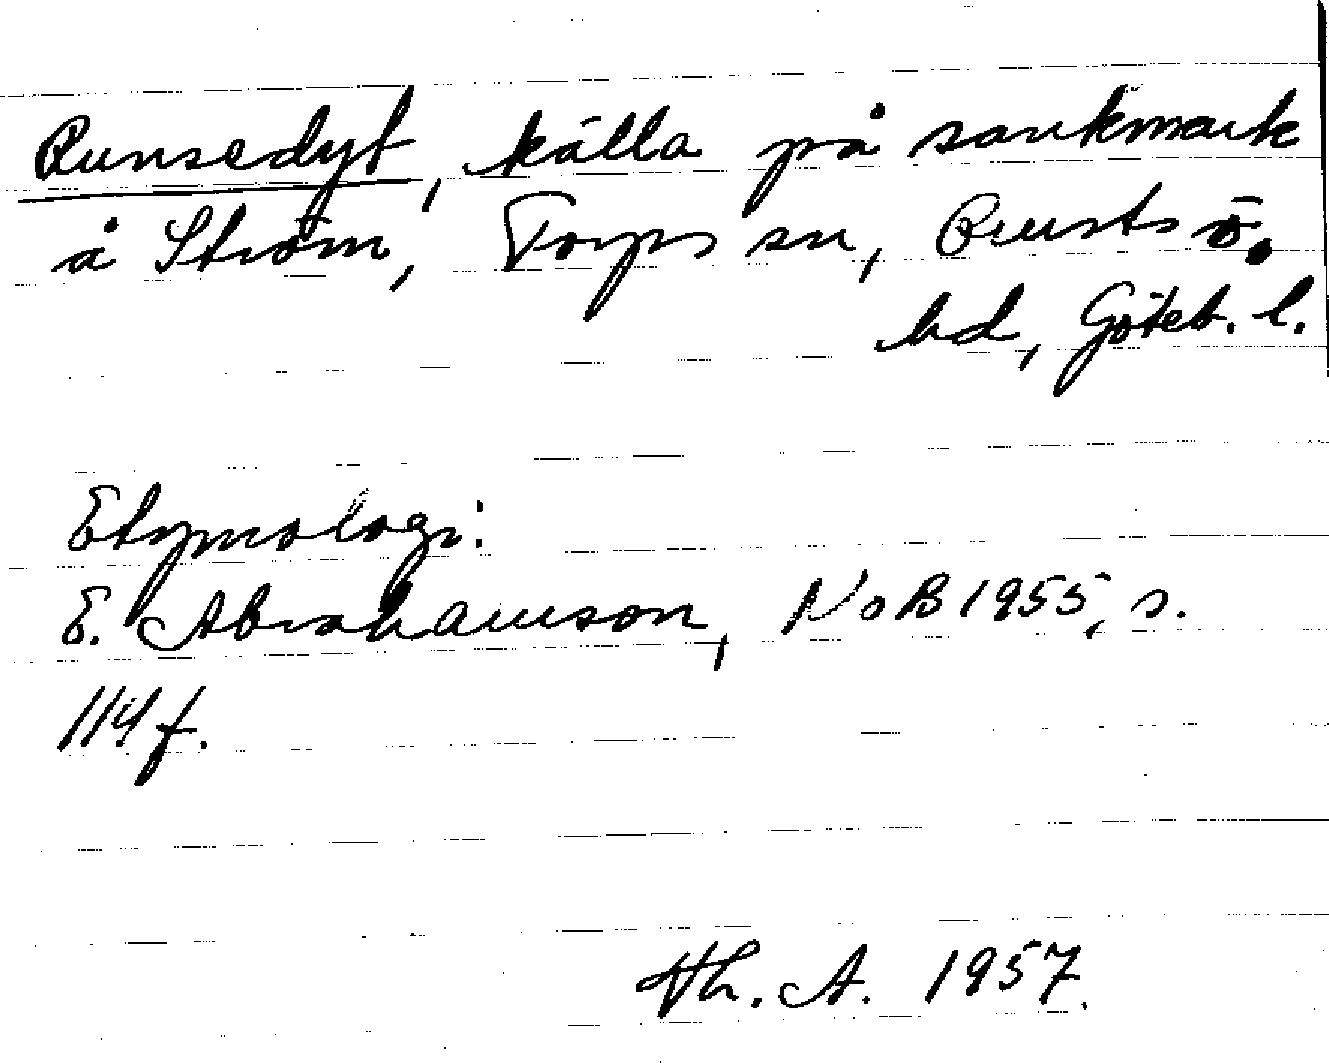 Runsedyt, källa på sankmark
å Ström, Torps sn, Bursts ö.
hd, Göteb. l.
Etymologi:
E. Abrahamson, NoB 1955, s.
114 f.
Th. A. 1957.